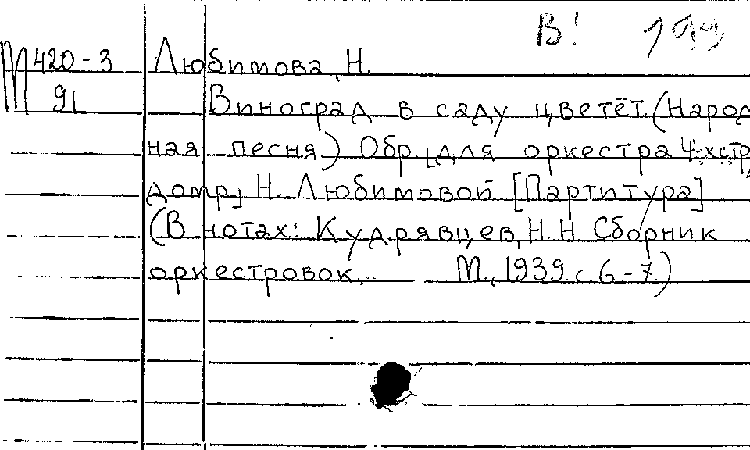 В!
М420-3 Любимова, Н.
91 Виноград в саду цветёт. (Народ-
ная песня) Обр. [для оркестра 4-хстр.
домр] Н. Любимовой [Партитура]
(В нотах: Кудрявцев, Н.Н. Сборник
оркестровок... М., 1939. с. 6-7.)